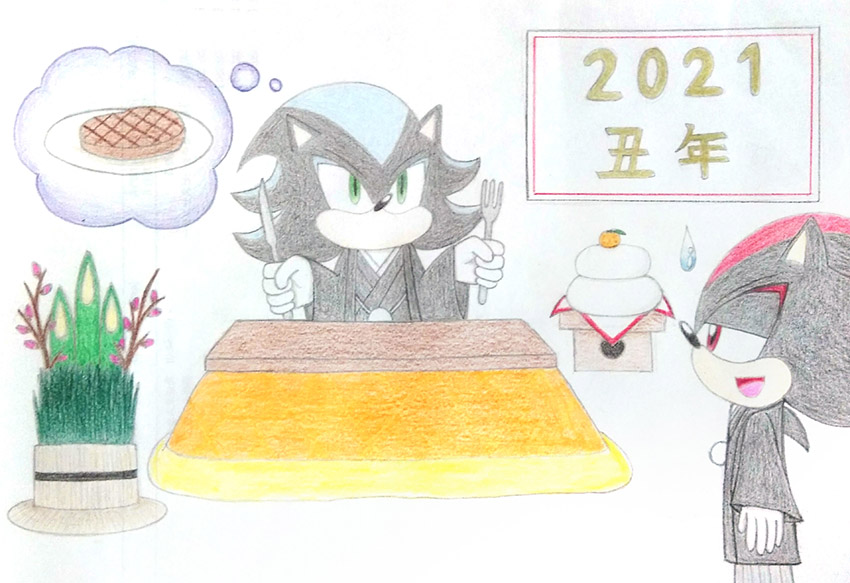 2021
丑年